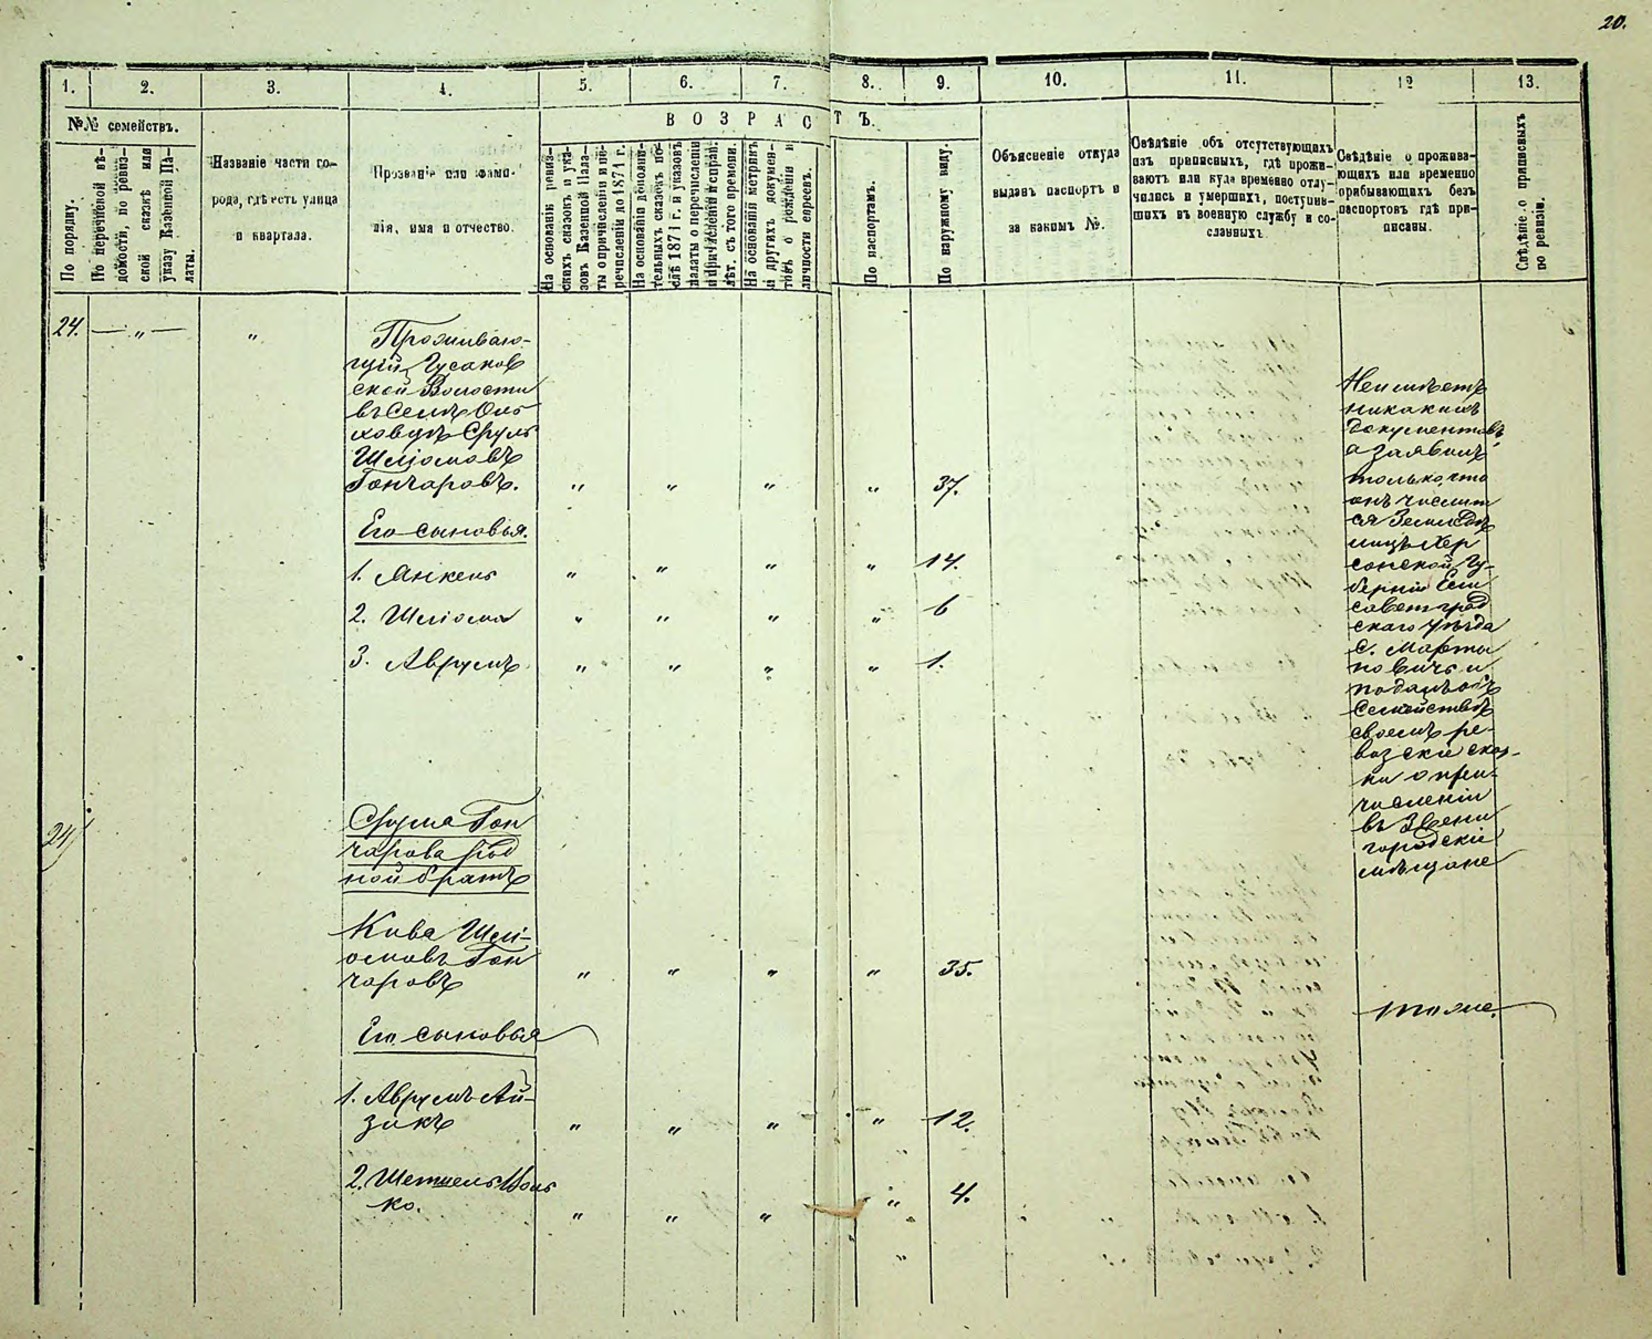 20.
1. 2. 3. 4. 5. 6. 7. 8. 9. 10. 11. 12 13.
№№ семействъ.
ВОЗРАСТЪ.
По порядку.
По перечневой вѣ-
домости, по ревиз-
ской сказкѣ или
указу Казенной Па-
латы.
Названіе части го-
рода, гдѣ есть улица
и квартала.
Прозваніе или фами-
лія, имя и отчество.
На основаніи ревиз-
скихъ сказокъ и ука-
зовъ Казенной Пала-
ты о причисленіи и пе-
речисленіи до 1871 г.
На основаніи дополни-
тельныхъ сказокъ по-
слѣ 1871 г. и указовъ
палаты о перечисленіи
и причисленіи и справ.
лѣт. съ того времени.
На основаніи метрикъ
и другихъ докумен-
товъ о рожденіи и
личности евреевъ.
По паспортамъ.
По наружному виду.
Объясненіе откуда
выданъ паспортъ и
за какимъ №.
Свѣдѣніе объ отсутствующихъ
изъ приписныхъ, гдѣ прожи-
ваютъ или куда временно отлу-
чились и умершихъ, поступив-
шихъ въ военную службу и со-
сланныхъ.
Свѣдѣніе о прожива-
ющихъ или временно
прибывающихъ безъ
паспортовъ гдѣ при-
писаны.
Свѣдѣніе о приписныхъ
по ревизіи.
24. — „ — „
Проживаю-
щій Гусаков
ской Волости
въ Селѣ Оль
ховцѣ Сруль
Шліомовъ
Гончаровъ. „ „ „ „ 37.
Его сыновья.
1. Янкель „ „ „ „ 14.
2. Шліома „ „ „ „ 6
3. Аврумъ „ „ „ „ 1.
Неимѣетъ
никакихъ
документовъ,
а заявилъ
только, что
онъ числит
ся Землѣдѣ
лецъ Хер
сонской Гу-
берніи Ели
саветград
скаго уѣзда
С. Марты
новичъ и
подалъ объ
семействѣ
своемъ ре-
визскіе сказ-
ки о при-
численіи
въ Звени
городскіе
мѣщане
24/
Сруля Гон
чарова род
ной братъ
Кива Шлі-
омовъ Гон
чаровъ „ „ „ „ 35.
тоже.
Его сыновья
1. Аврумъ Ай-
зикъ „ „ „ „ 12.
2. Шепшель Воль
ко. „ „ „ „ 4.